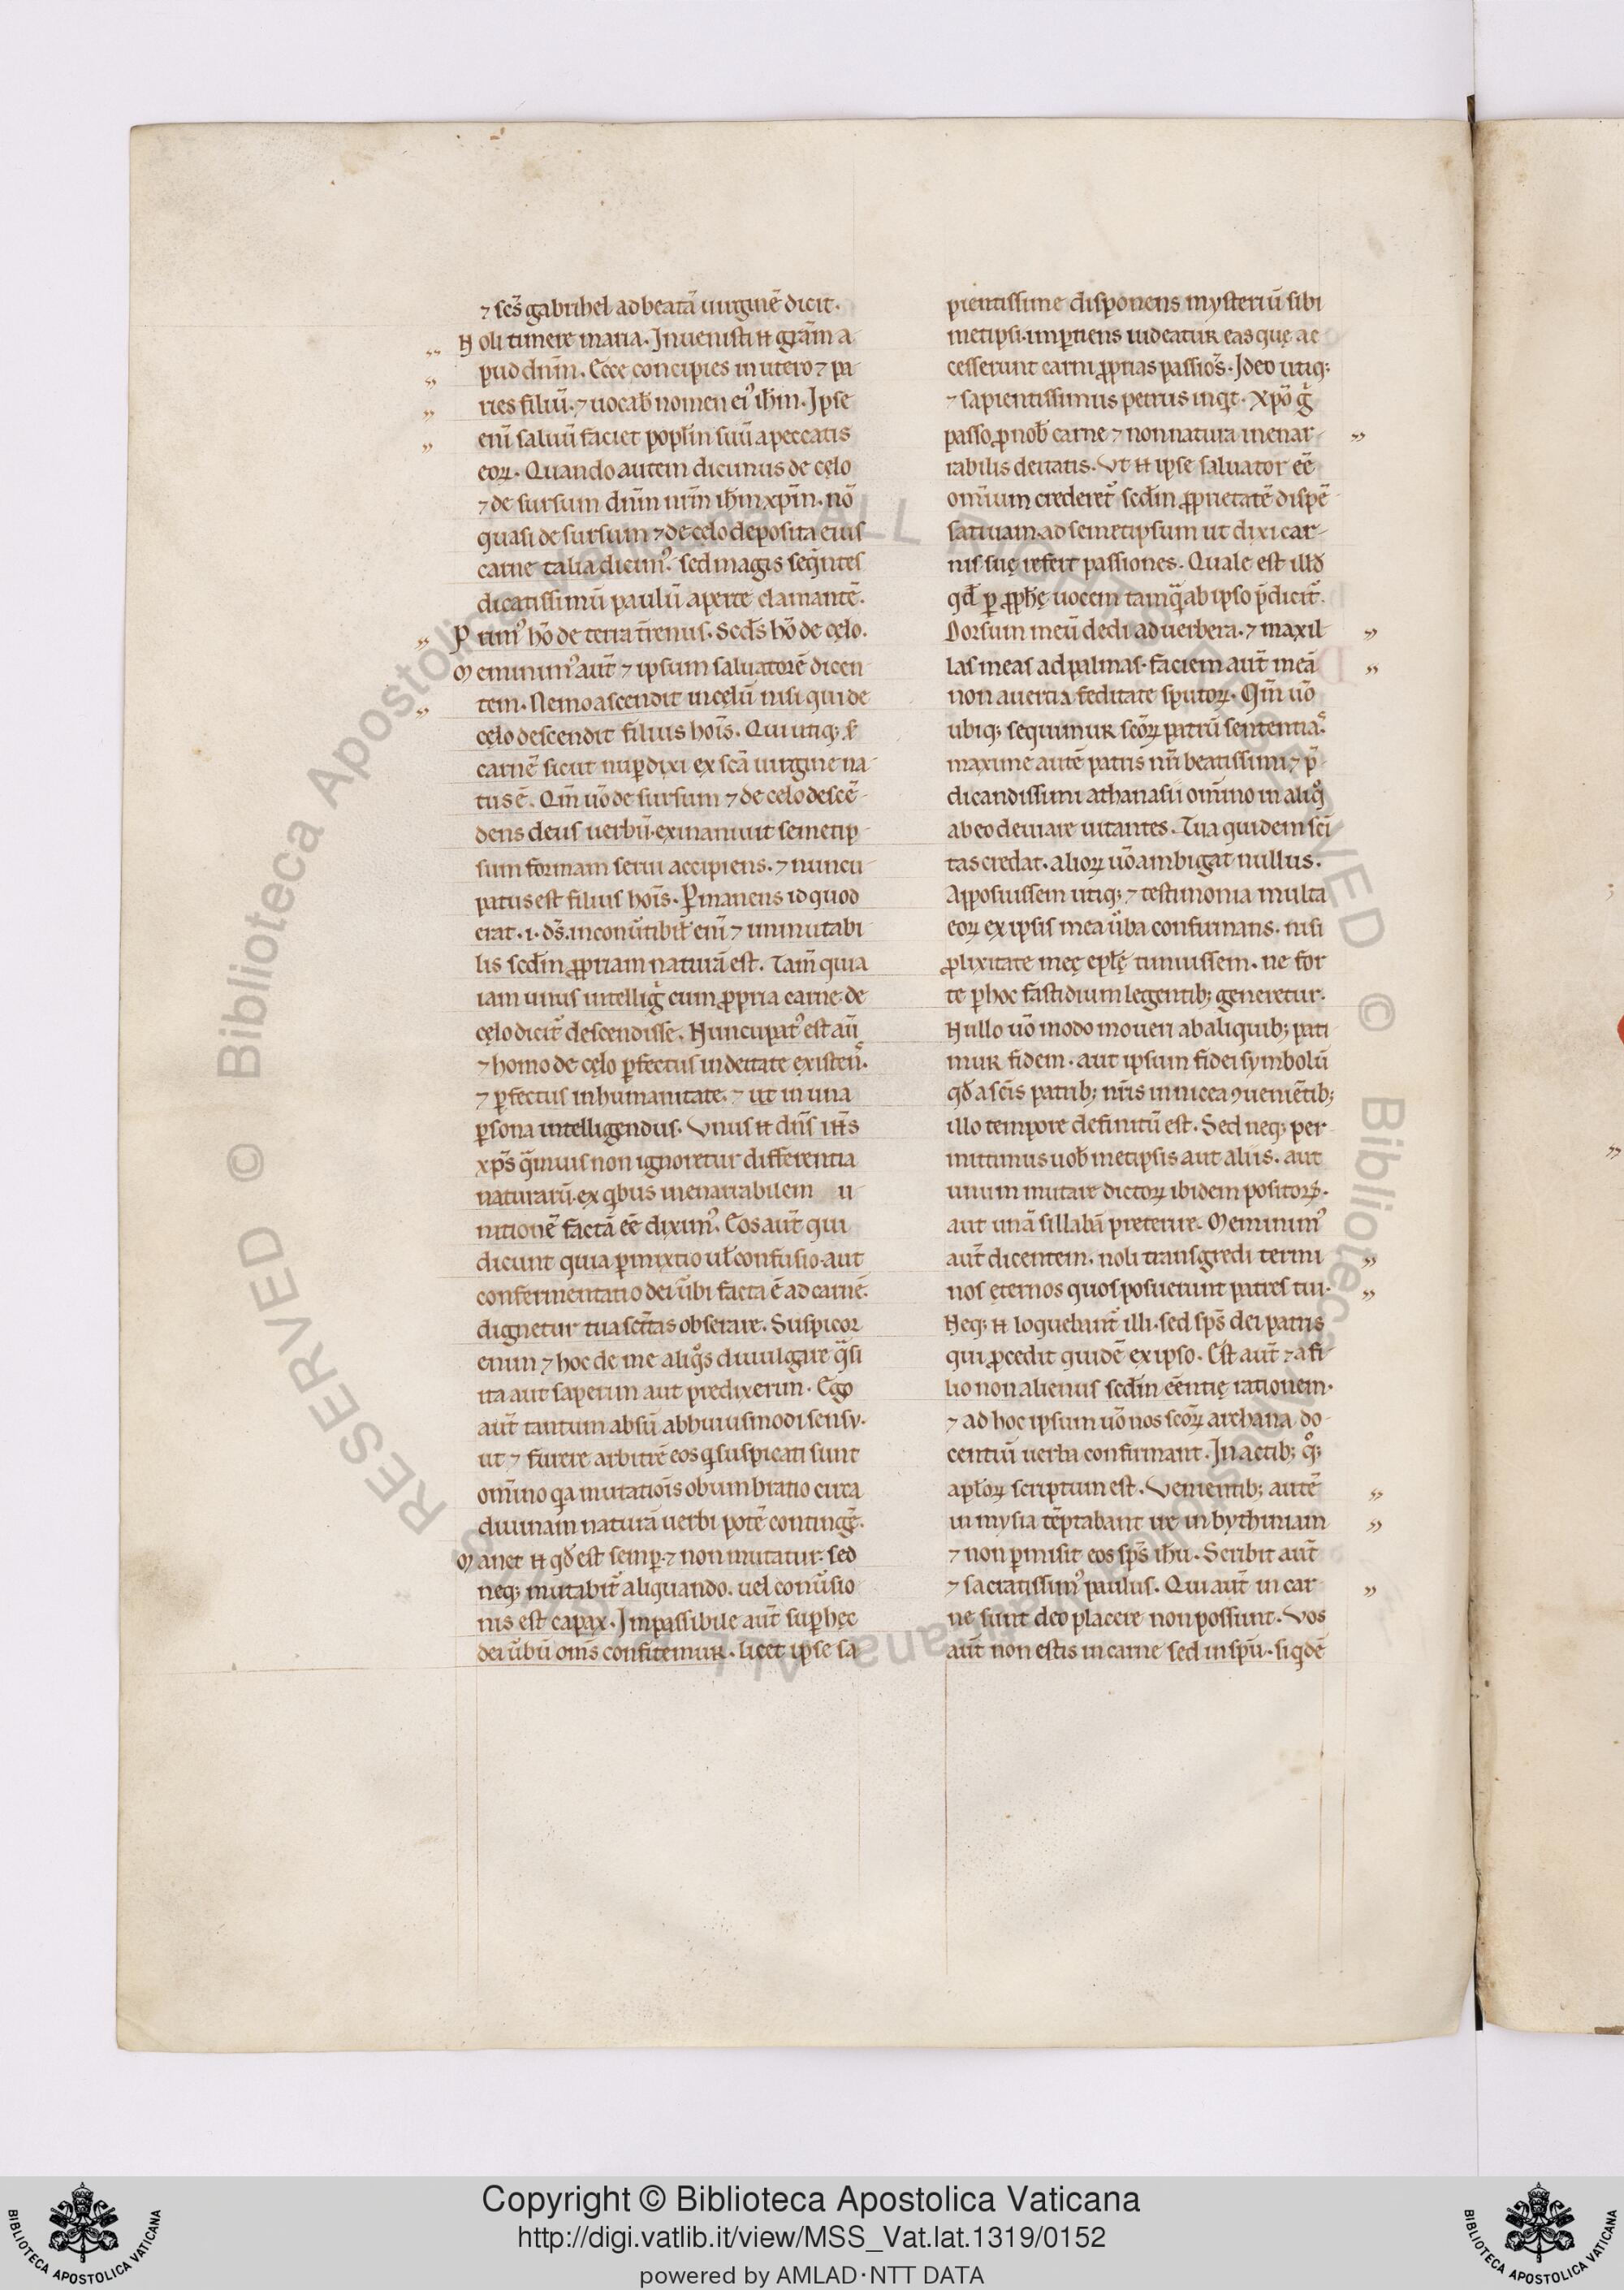 ⁊ scs̄ gabrihel ad beatā uirginē dicit.
Noli timere maria. Inuenisti .n. gr̄am a
pud dn̄m. Ecce concipies in utero ⁊ pa
ries filiū. ⁊ uocab̄ nomen eiꝰ ih̄m. Ipse
eni̅ saluū faciet popl̄m suū a peccatis
eoꝝ. Quando autem dicimus de cęlo
⁊ de sursum dn̄m nr̄m ih̄m xp̄m. nō
quasi de sursum ⁊ de cęlo deposita eius
carne talia dicimꝰ. sed magis seq̄ntes
dicatissimū paulū aperte clamantē.
Primꝰ hō de terra tr̄enus. Scd̄s hō de cęlo.
Meminimꝰ aut̄ ⁊ ipsum saluatorē dicen
tem. Nemo ascendit in cęlū nisi qui de
cęlo descendit filius hoīs. Qui utiq; s̄
carnē sicut nup̄ dixi ex sc̄a uirgine na
tus ē. Qm̄ uō de sursum ⁊ de celo descē
dens deus uerbū. exinaniuit semetip
sum formam serui accipiens. ⁊ nuncu
patus est filius hoīs. P̄manens id quod
erat .i. ds̄. inconūtibil̄ eni̅ ⁊ inmutabi
lis scd̄m ꝓpriam naturā est. Tam̄ quia
iam unus intelliḡ cum ꝓpria carne de
cęlo dicit̄ descendisse. Nuncupatꝰ est aū
⁊ homo de cęlo ꝑfectus in deitate existen̄s.
⁊ ꝑfectus in humanitate. ⁊ ut in una
ꝑsona intelligendus. Unus .n. dn̄s ih̄s
xp̄s q̄muis non ignoretur differentia
naturarū. ex qⁱbus inenarrabilem u
nitionē factā eē diximꝰ. Eos aut̄ qui
dicunt quia ꝑmixtio ul̄ confusio. aut
confermentatio dei ūbi facta ē ad carnē.
dignetur tua sc̄itas obserare. Suspicor
enim ⁊ hoc de me aliq̊s diuulgare q̄si
ita aut saperim aut predixerim. Ego
aut̄ tantum absū ab huiusmodi sensu.
ut ⁊ furere arbitrē eos q̄ suspicati sunt
om̄ino qa mutatiois̄ obumbratio circa
diuinam naturā uerbi potē contingē.
Manet .n. qd̄ est semꝑ. ⁊ non mutatur. sed
neq; mutabit̄ aliquando. uel conūsio
nis est capax. Impassibile aut̄ suꝑ hęc
dei ūbū om̄s confitemur. licet ipse sa
pientissime disponens mysteriū sibi
metipsi. imꝑtiens uideatur eas quę ac
cesserunt carni ꝓprias passiōs. Ideo utiq;
⁊ sapientissimus petrus inqⁱt. Xp̄o g̊
passo ꝓ nob̄ carne ⁊ non natura inenar
rabilis deitatis. Ut .n. ipse saluator eē
om̄ium crederet̄ scd̄m ꝓprietatē dispē
satiuam. ad semetipsum ut dixi car
nis suę refert passiones. Quale est illd̄
qd̄ ꝑ ꝓph̄ę uocem tamq̄ ab ipso p̄dicit̄.
Dorsum meū dedi ad uerbera. ⁊ maxil
las meas ad palmas. faciem aut̄ meā
non auerti a feditate sputoꝝ. Qm̄ uō
ubiq; sequimur sc̄oꝝ patrū sententias.
maxime autē patris nr̄i beatissimi ⁊ p̄
dicandissimi athanasii om̄ino in aliq̊
ab eo deuiare uitantes. Tua quidem sc̄i
tas credat. alioꝝ uō ambigat nullus.
Apposuissem utiq; ⁊ testimonia multa
eoꝝ ex ipsis mea ūba confirmans. nisi
ꝓlixitate meę epl̄ę timuissem. ne for
te ꝑ hoc fastidium legentib; generetur.
Nullo uō modo moueri ab aliquib; pati
mur fidem. aut ipsum fidei symbolū
qd̄ a sc̄is patrib; nr̄is in nicea ꝯueniētib;
illo tempore definitū est. Sed neq; per
mittimus uob̄ metipsis aut aliis. aut
unum mutare dictoꝝ ibidem positoꝝ.
aut unā sillabā preterire. Meminimꝰ
aut̄ dicentem. noli transgredi termi
nos ęternos quos posuerunt patres tui.
Neq; .n. loquebant̄ illi. sed sp̄s dei patris
qui ꝓcedit quidē ex ipso. Est aut̄ ⁊ a fi
lio non alienus scd̄m eēntię rationem.
⁊ ad hoc ipsum uō nos sc̄oꝝ archana do
centiū uerba confirmant. In actib; q̊;
apl̄oꝝ scriptum est. Venientib; autē
in mysia tēptabant ire in bythiniam
⁊ non ꝑmisit eos sp̄s ih̄u. Scribit aut̄
⁊ sacratissimꝰ paulus. Qui aut̄ in car
ne sunt deo placere non possunt. Vos
aut̄ non estis in carne sed in sp̄u. siqⁱdē
Copyright © Biblioteca Apostolica Vaticana
http://digi.vatlib.it/view/MSS_Vat.lat.1319/0152
powered by AMLAD·NTT DATA
BIBLIOTECA APOSTOLICA VATICANA
BIBLIOTECA APOSTOLICA VATICANA